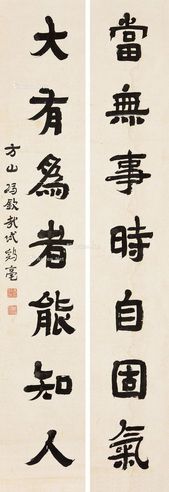 當無事時自固氣
大有為者能知人
方山馮歗哉試鷄毫